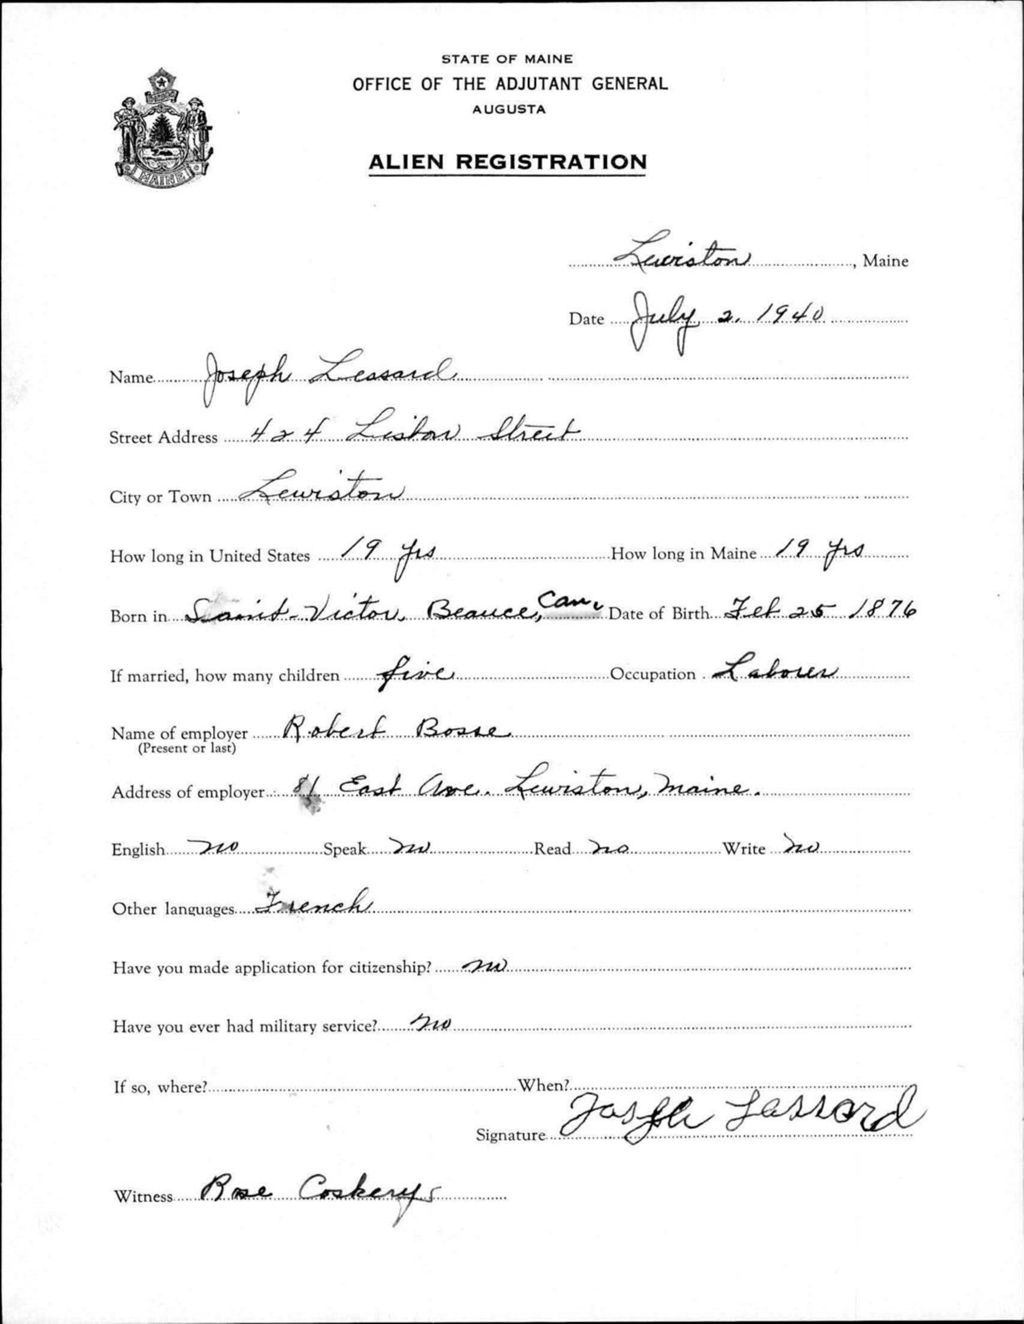 STATE OF MAINE
OFFICE OF THE ADJUTANT GENERAL
AUGUSTA
ALIEN REGISTRATION
MAINE
Lewiston, Maine
Date July 2, 1940
Name Joseph Lessard
Street Address 424 Lisbon Street
City or Town Lewiston
How long in United States 19 yrs How long in Maine 19 yrs
Born in Saint-Victor, Beauce, Can. Date of Birth Feb 25 1876
If married, how many children five Occupation Laborer
Name of employer Robert Bosse
(Present or last)
Address of employer 81 East Ave. Lewiston, Maine.
English no Speak no Read no Write no
Other languages French
Have you made application for citizenship? no
Have you ever had military service? no
If so, where? When?
Signature Joseph Lessard
Witness Rose Coskery